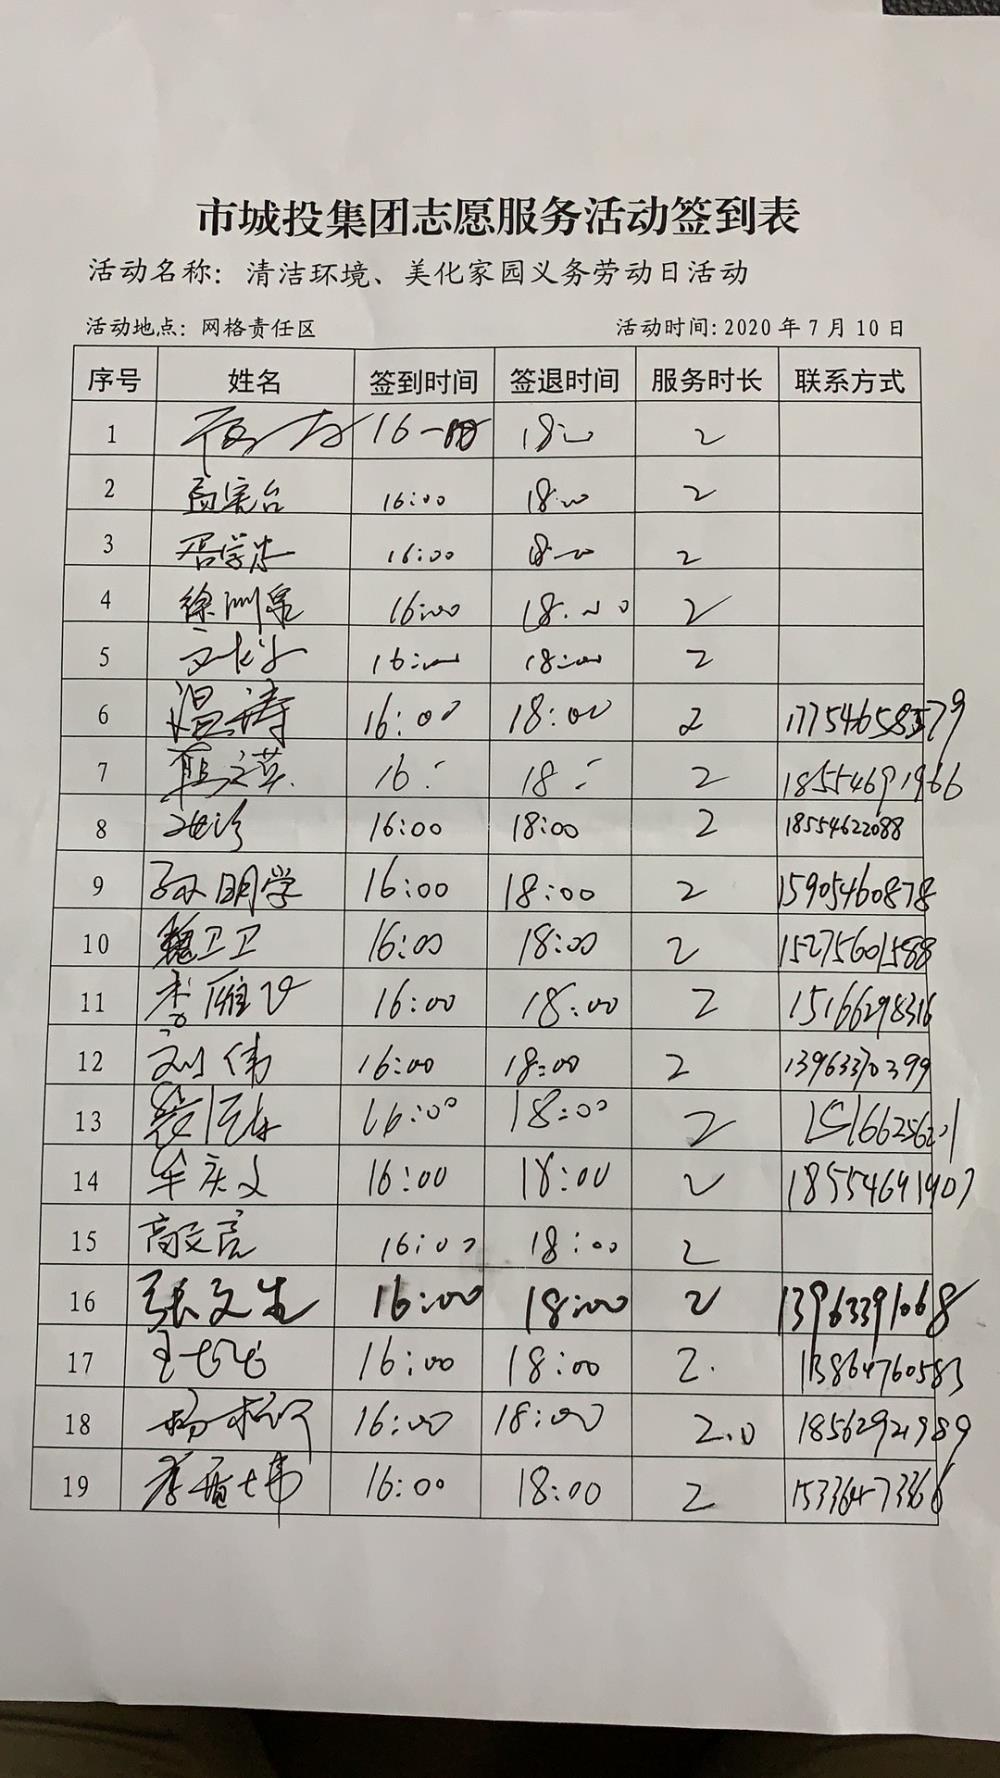 市城投集团志愿服务活动签到表
活动名称：清洁环境、美化家园义务劳动日活动
活动地点：网格责任区 活动时间：2020年7月10日
序号 姓名 签到时间 签退时间 服务时长 联系方式
1 18:00 2
2 16:00 18:00 2
3 16:00 18:00 2
4 16:00 18:00 2
5 16:00 18:00 2
6 温涛 16:00 18:00 2 17754658579
7 16: 18: 2 18554691966
8 16:00 18:00 2 18554622088
9 孙明学 16:00 18:00 2 15905460878
10 魏卫卫 16:00 18:00 2 15275601588
11 李雁飞 16:00 18:00 2 15166298316
12 刘伟 16:00 18:00 2 13963370399
13 16:00 18:00 2
14 牟庆文 16:00 18:00 2 18554691907
15 高文亮 16:00 18:00 2
16 张文生 16:00 18:00 2 13963391068
17 16:00 18:00 2. 13864760583
18 16:00 18:00 2.0
19 16:00 18:00 2 15336473366